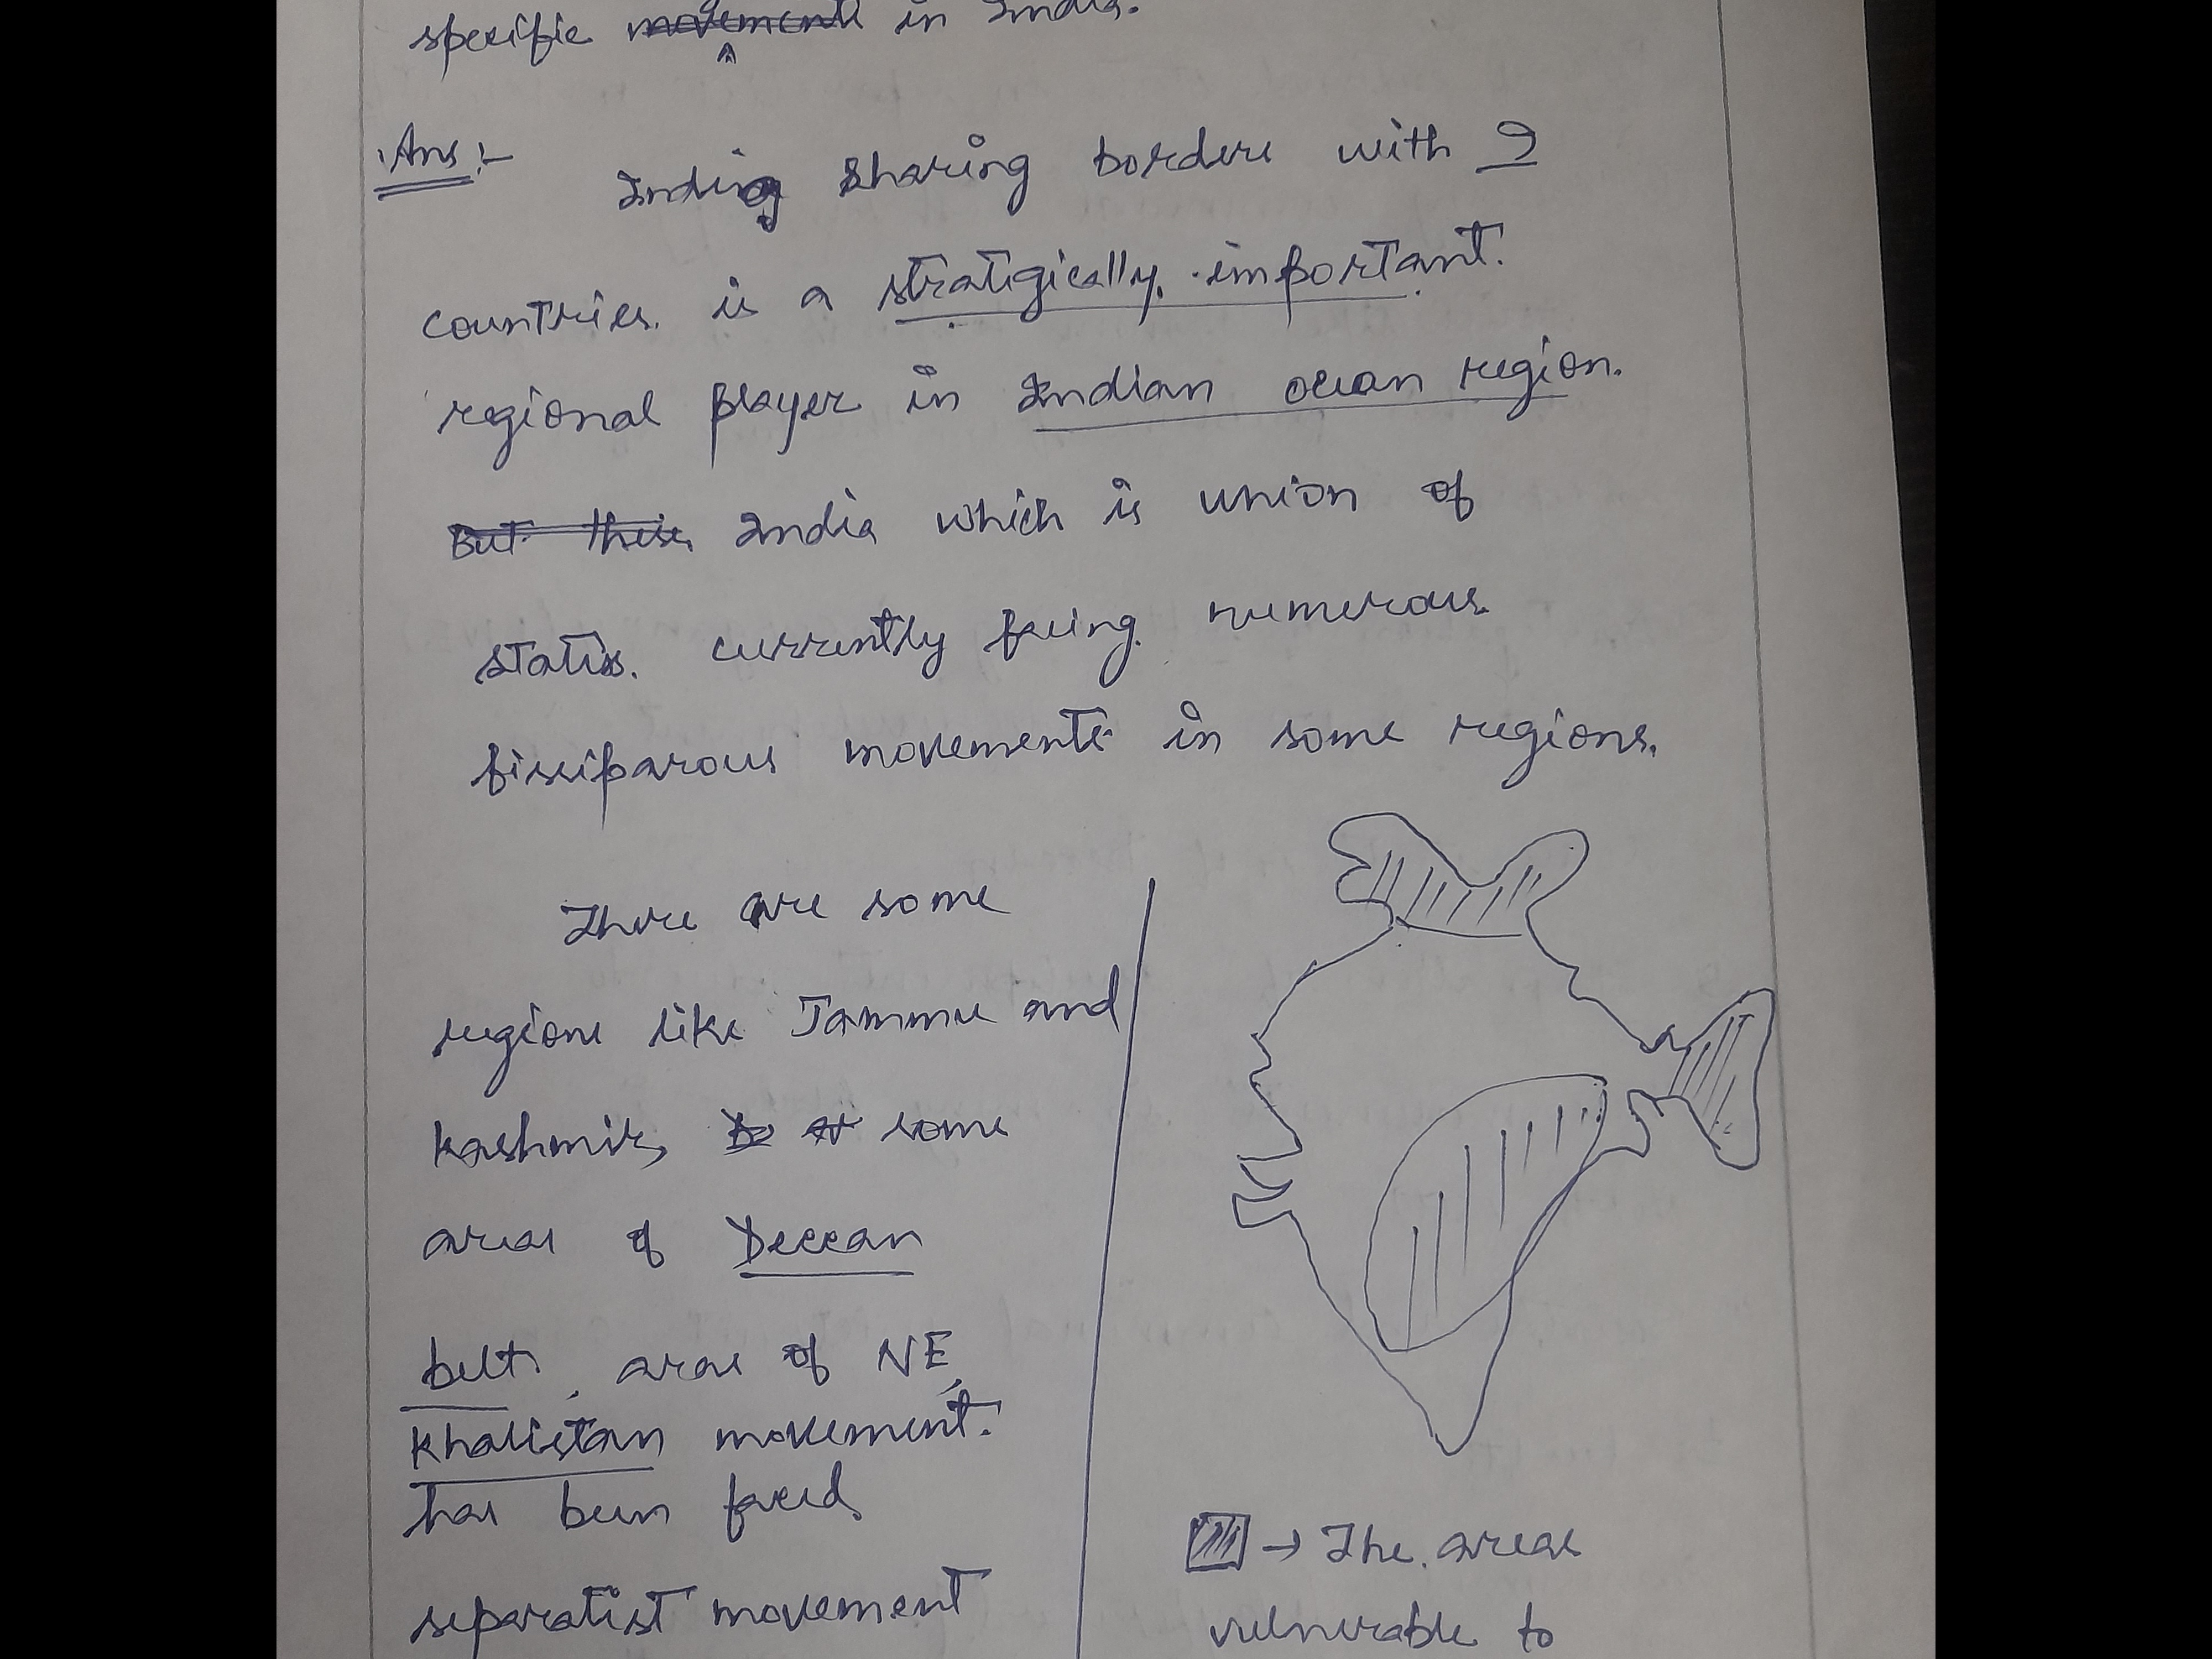 specific movement in India.
Ans:-
India sharing borders with 9
countries is a stratigically important
regional player in Indian ocean region.
But these India which is union of
states. currently facing numerous
fissiparous movements in some regions.
There are some
regions like Jammu and
Kashmir, some
areas of Deccan
belt, areas of NE,
Khalistan movement.
has been faced
separatist movement
→ The areas
vulnerable to